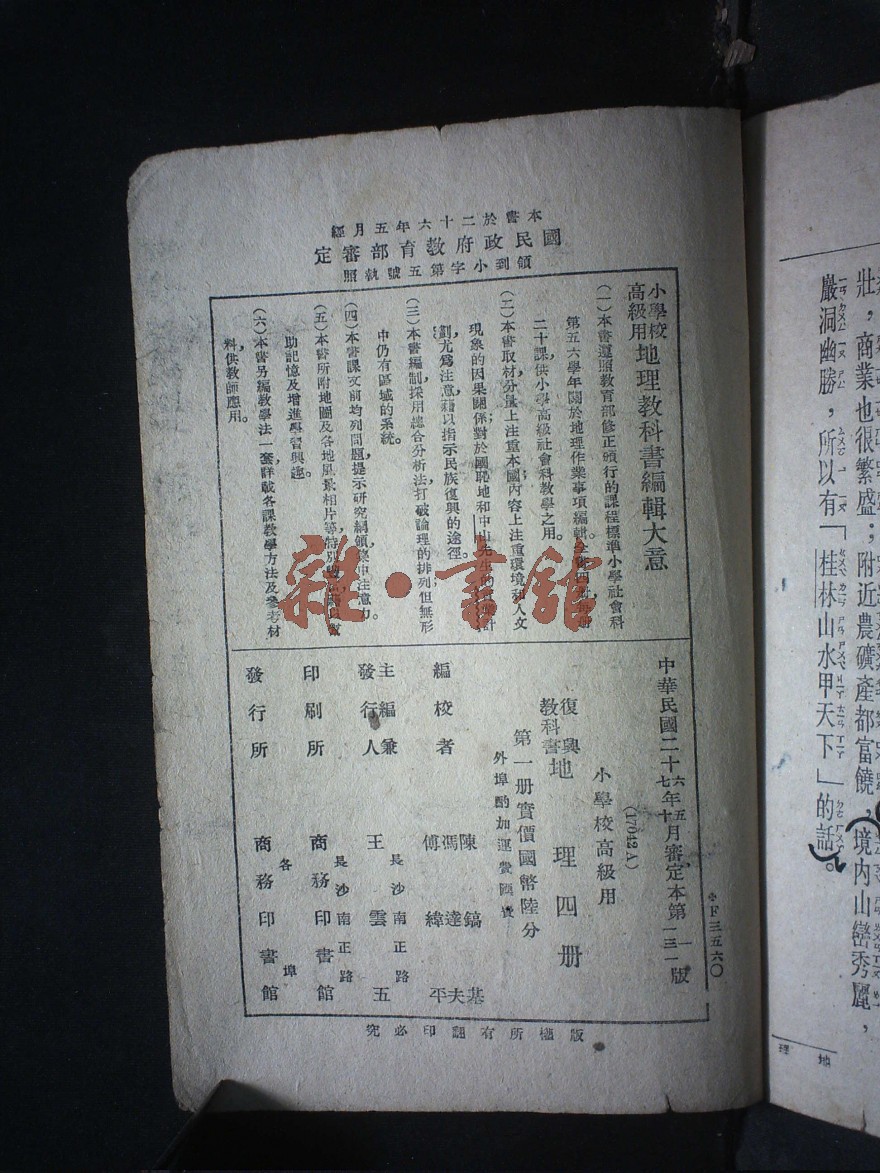 本書於二十六年五月經
國民政府教育部審定
領到小字第五號執照
小學校高級用
地理教科書編輯大意
（一）本書遵照教育部修正頒行的課程標準小學社會科
第五六學年關於地理作業事項編輯全書四冊每冊
二十課，供小學高級社會科教學之用。
（二）本書取材分量上注重本國內容上注重環境和人文
現象的因果關係；對於國恥地和中山先生的計
劃尤爲注意，藉以指示民族復興的途徑。
（三）本書編制採用總合分析法，打破論理的排列但無形
中仍有區域的系統。
（四）本書課文前均列問題，提示研究綱領，集中注意力。
（五）本書所附地圖及各地風景相片等特別
助記憶及增進學習興趣。
（六）本書另編教學法一套，詳載各課教學方法及參考材
料，供教師應用。
中華民國二十六年五月審定本第一版
七十一三
(17042A)
小學校高級用
復興教科書
地理四册
第一册實價國幣陸分
外埠酌加運費匯費
編校者
陳鎬基
馮達夫
傅緯平
主編兼發行人
王雲五
長沙南正路
印刷所
長沙南正路
商務印書館
發行所
各埠
商務印書館
版權所有翻印必究
F三五六〇
雜·書館
壯，商業也很繁盛；附近農礦產都富饒，境內山巒秀麗，
巖洞幽勝，所以有「桂林山水甲天下」的話。
地理